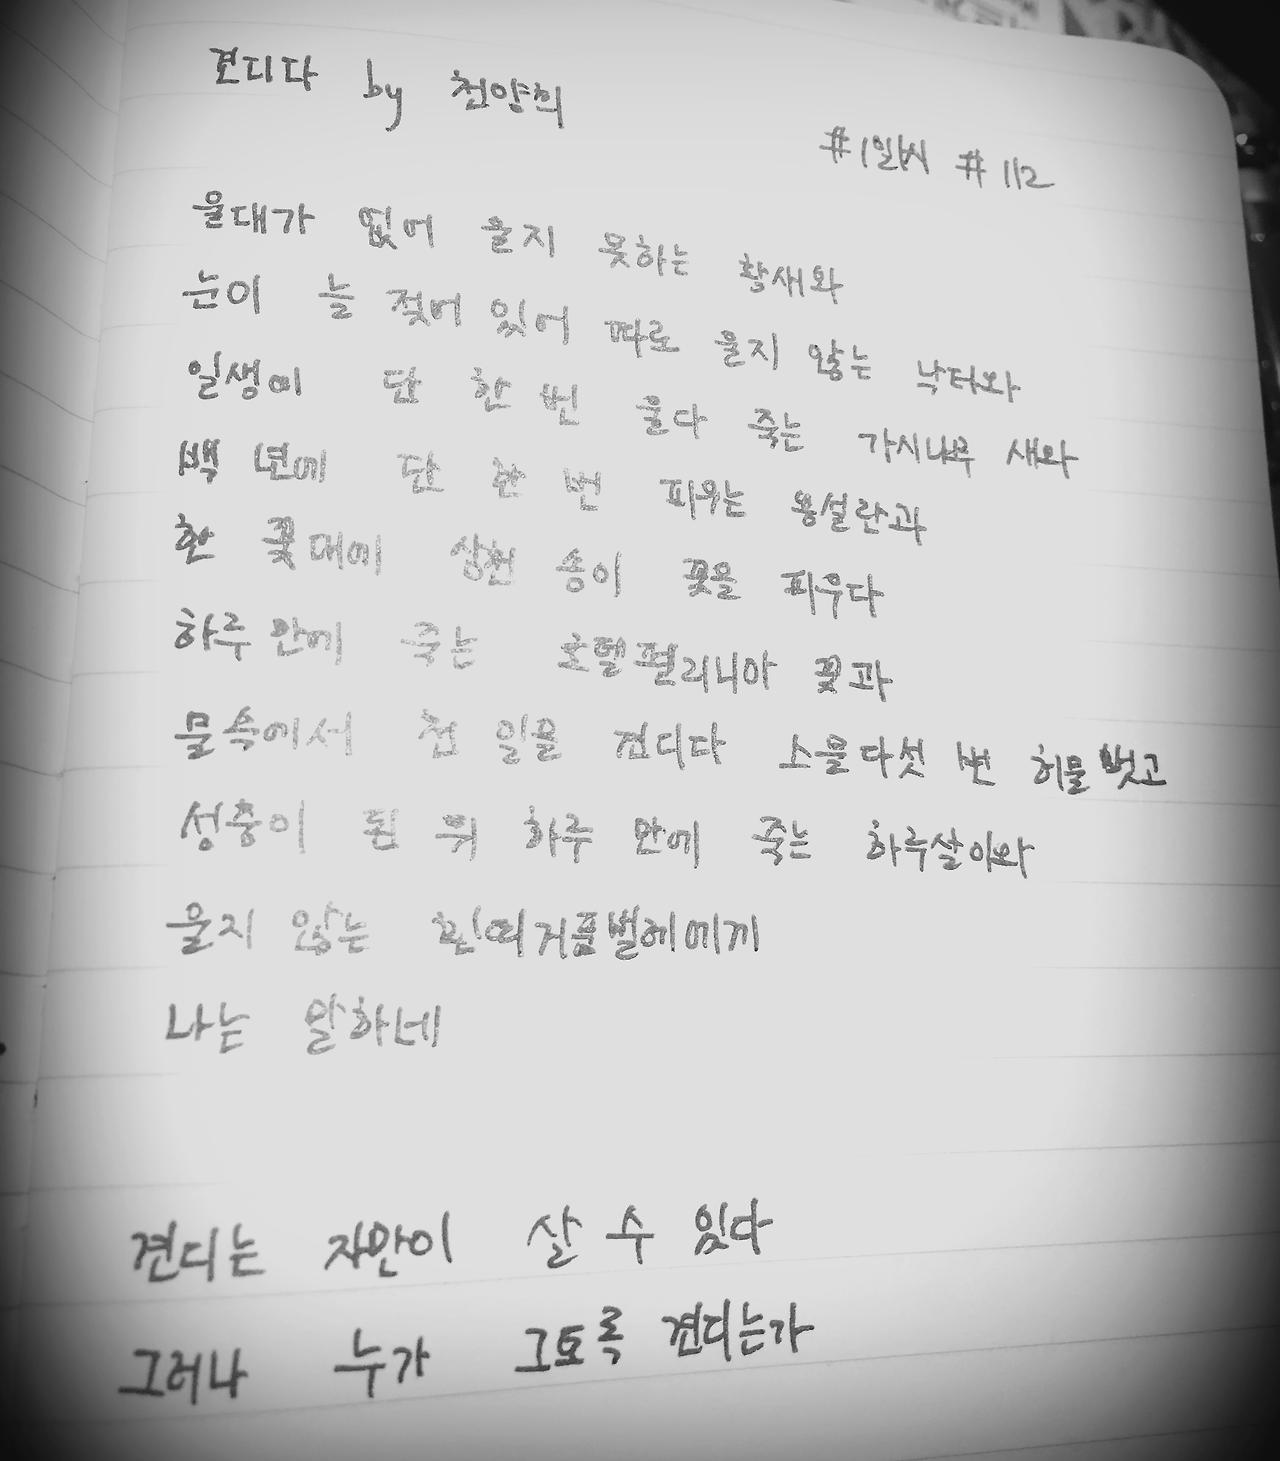 견디다 by 천양희
#1일1시 #112
울대가 없어 울지 못하는 황새와
눈이 늘 젖어 있어 따로 울지 않는 낙타와
일생에 단 한 번 울다 죽는 가시나무 새와
백 년에 단 한 번 피우는 용설란과
한 꽃대에 삼천 송이 꽃을 피우다
하루 안에 죽는 호텔펠리니아 꽃과
물 속에서 천 일을 견디다 스물다섯 번 허물 벗고
성충이 된 뒤 하루 안에 죽는 하루살이와
울지 않는 흰띠거품벌레에게
나는 말하네
견디는 자만이 살 수 있다
그러나 누가 그토록 견디는가